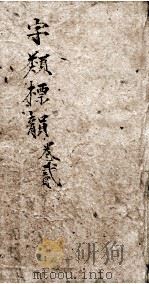 字類標韻卷貳
研狗
mtoou.info